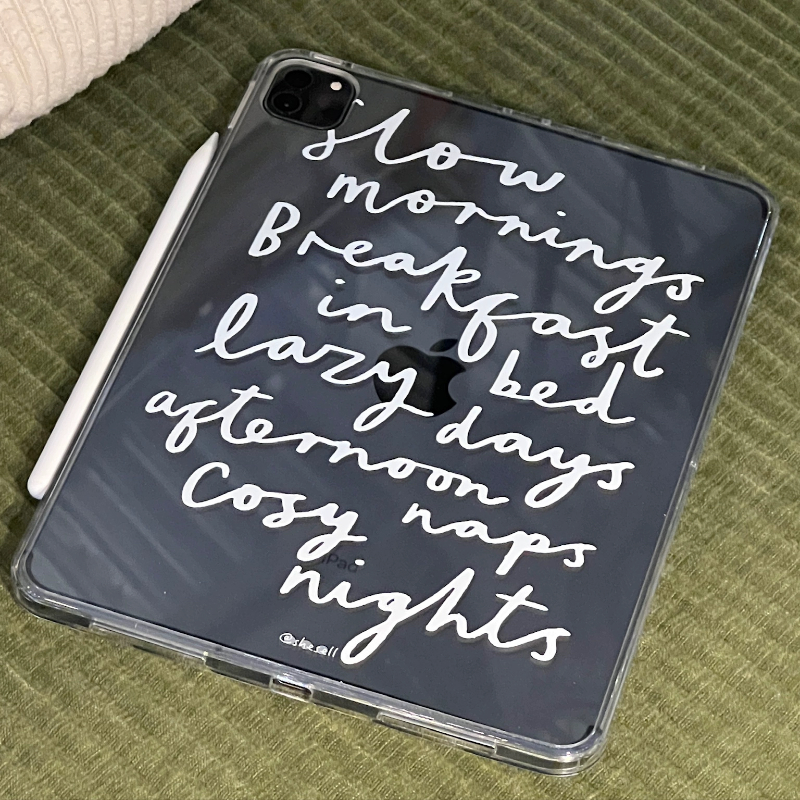 slow
mornings
Breakfast
in bed
lazy days
afternoon naps
Cosy
nights
iPad